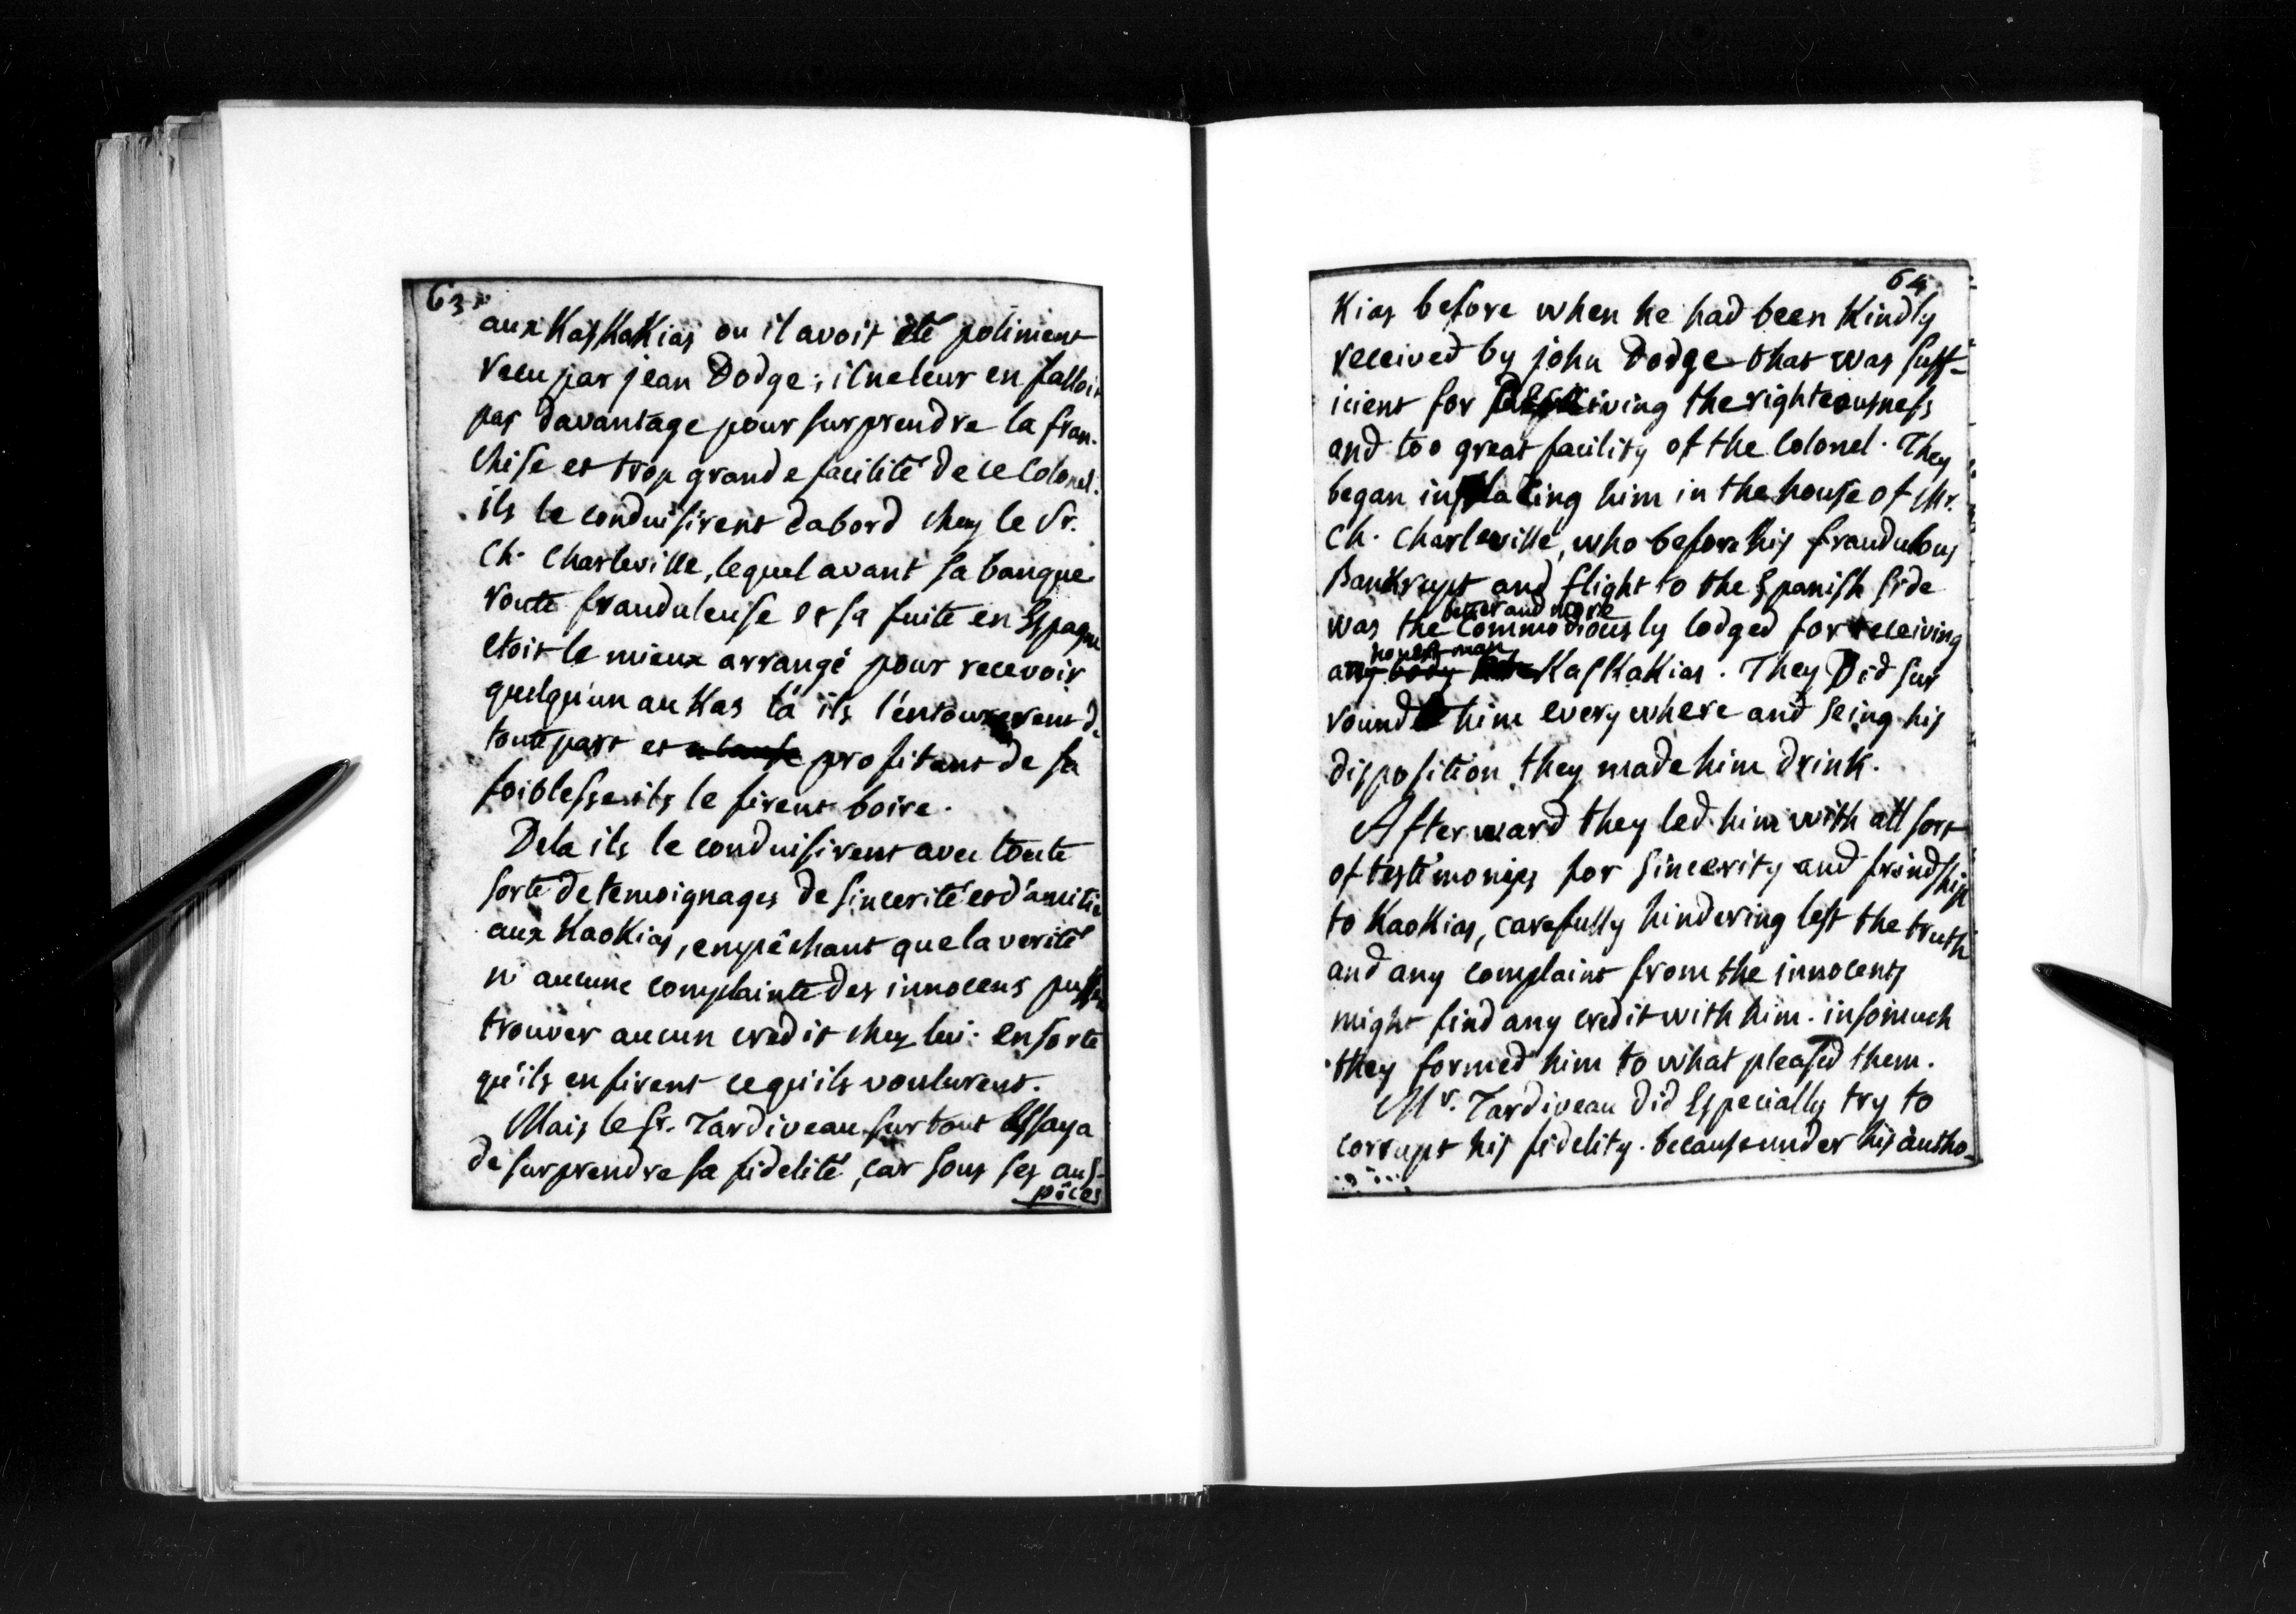 63.
aux KasKaKias ou il avoit été poliment
recu par jean Dodge; il ne leur en falloit
pas davantage pour surprendre la fran-
chise et trop grande facilité de ce Colonel.
ils le conduisirent dabord chez le Sr.
Ch. Charleville, lequel avant sa banque-
route frauduleuse et sa fuite en Espagne
etoit le mieux arrangé pour recevoir
quelqu'un au Kas là ils l'entourerent de
toute part et profitant de sa
foiblesse ils le firent boire.
Dela ils le conduisirent avec toute
sorte de temoignages de sincerité et d'amitié
aux KaoKias, empêchant que la verité
ni aucune complainte des innocens pussent
trouver aucun credit chez lui. ensorte
qu'ils en firent ce qu'ils voulurent.
Mais le Sr. Tardiveau surtout Essaya
de surprendre sa fidelité, car sous ses aus-
pices
64.
Kias before when he had been Kindly
received by john Dodge that was suff-
icient for the righteousness
and too great facility of the Colonel. They
began in placing him in the house of Mr.
Ch. Charleville, who before his fraudulous
BanKrupt and flight to the Spanish side
better and more
was the Commodiously lodged for receiving
honest man
any body KasKaKias. They Did sur
round him every where and seing his
disposition they made him drink.
Afterward they led him with all sort
of testimonies for sincerity and frindship
to KaoKias, carefully hindering lest the truth
and any complaint from the innocents
might find any credit with him. insomuch
they formed him to what pleased them.
Mr. Tardiveau did Especially try to
corrupt his fidelity. because under his autho-